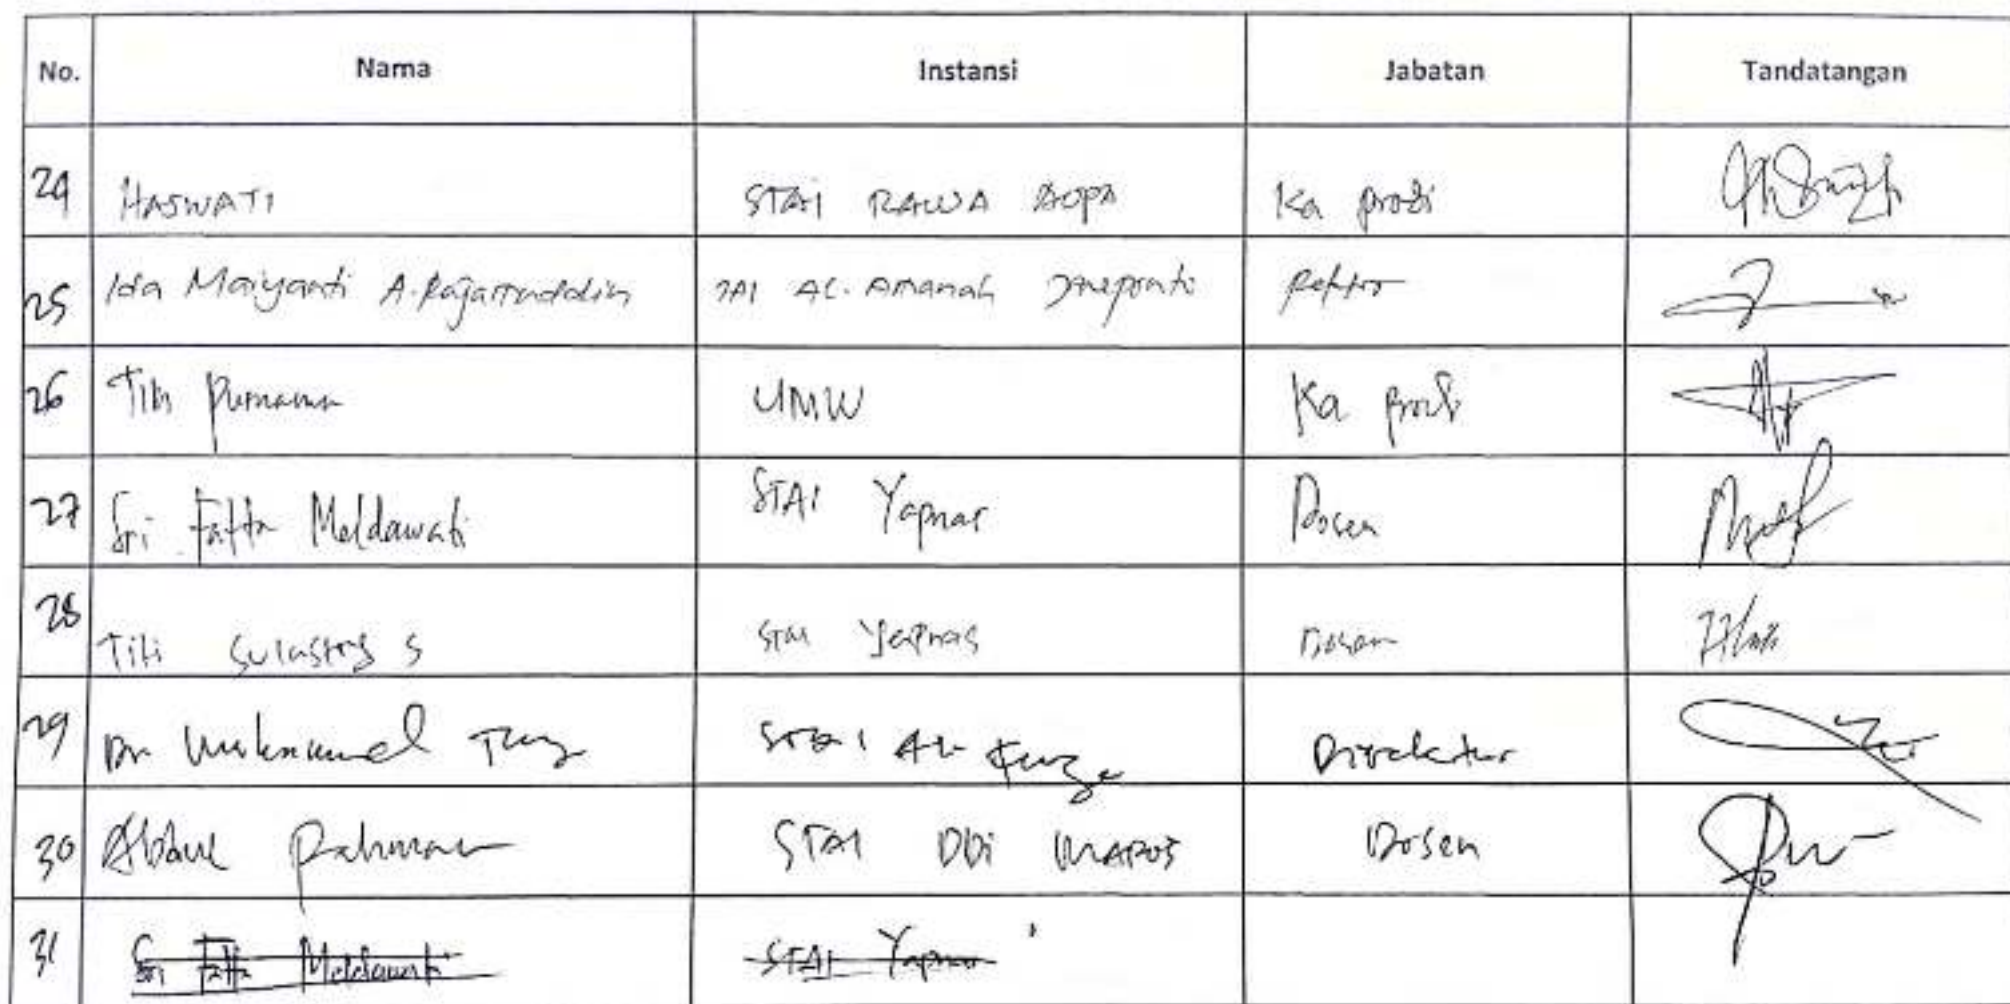 No. Nama Instansi Jabatan Tandatangan
24 HASWATI STAI RAWA AOPA Ka prodi
25 Ida Maiyanti A. IAI AL-Amanah Jeneponto Rektor
26 Purnama UMW Ka prodi
27 Sri Fatta Meldawati STAI Yapnas Dosen
28 Titi Sulastri S STAI Yapnas Dosen
29 DR STAI AL Direktur
30 Abdul Rahman STAI DDI MAROS Dosen
31 Sri Fatta Meldawati STAI Yapnas